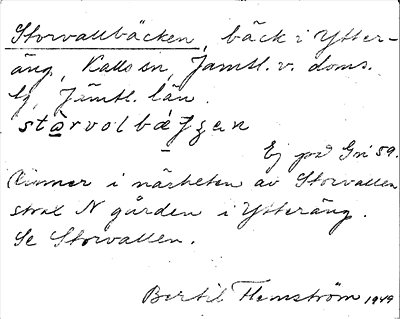 Storvallbäcken, bäck i Ytter-
äng, Kalls sn, Jämtl. v. doms.
tg, Jämtl. län.
Ej på Gn 59.
Rinner i närheten av Storvallen
strax N gården i Ytteräng.
Se Storvallen.
Bertil Flemström 1949